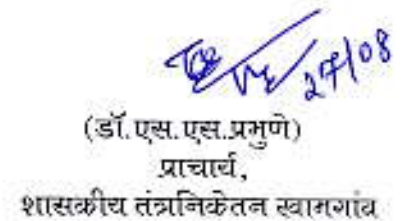 27/08
(डॉ.एस.एस.प्रभुणे)
प्राचार्य,
शासकीय तंत्रनिकेतन खामगांव